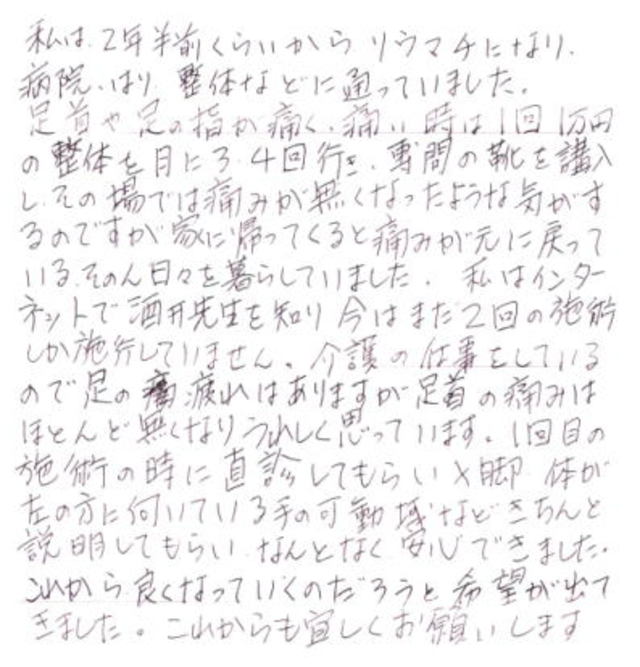 私は、2年半前くらいから リウマチになり、
病院、はり、整体などに通っていました。
足首や足の指が痛く、痛い時は1回1万円
の整体を月に3、4回行き、専問の靴を講入
し、その場では痛みが無くなったような気がす
るのですが家に帰ってくると痛みが元に戻って
いる、そのん日々を暮らしていました。 私はインター
ネットで酒井先生を知り今はまだ2回の施術
しか施術していません。介護の仕事をしている
ので足の 疲れはありますが足首の痛みは
ほとんど無くなりうれしく思っています。1回目の
施術の時に直診してもらいX脚、体が
左の方に何いている手の可動域などきちんと
説明してもらい、なんとなく安心できました。
これから良くなっていくのだろうと希望が出て
きました。これからも宜しくお願いします